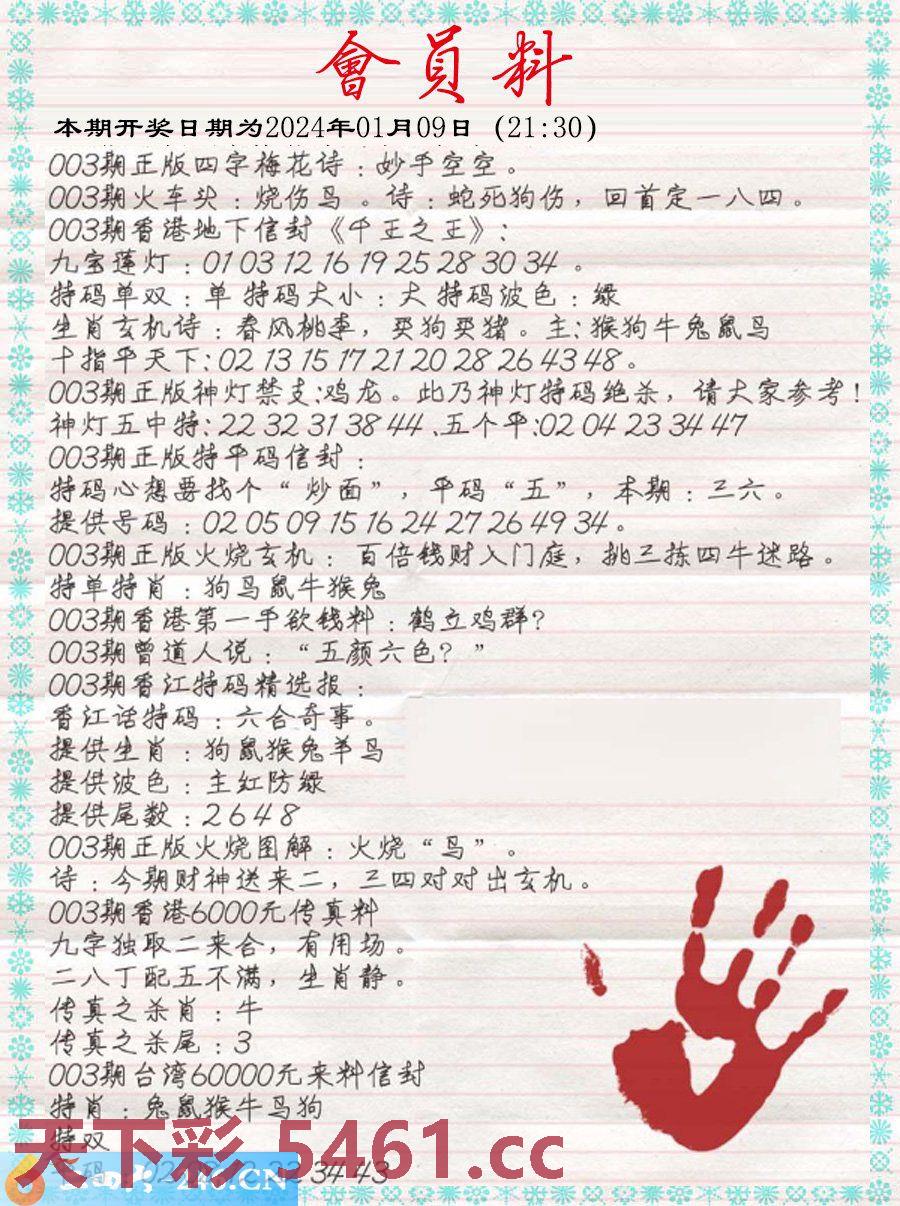 會員料
本期开奖日期为2024年01月09日（21:30）
003期正版四字梅花诗：妙手空空。
003期火车头：烧伤鸟。诗：蛇死狗伤，回首定一八四。
003期香港地下信封《千王之王》:
九宝莲灯：01 03 12 16 19 25 28 30 34 。
特码单双：单 特码大小：大 特码波色：绿
生肖玄机诗：春风桃李，买狗买猪。主: 猴狗牛兔鼠鸟
十指平天下: 02 13 15 17 21 20 28 26 43 48。
003期正版神灯禁支:鸡龙。此乃神灯特码绝杀，请大家参考！
神灯五中特: 22 32 31 38 44 、五个平:02 04 23 34 47
003期正版特平码信封：
特码心想要找个“ 炒面”，平码“五”，本期：三六。
提供号码：02 05 09 15 16 24 27 26 49 34。
003期正版火烧玄机：百倍钱财入门庭，挑三拣四牛迷路。
特单特肖：狗鸟鼠牛猴兔
003期香港第一手欲钱料：鹤立鸡群?
003期曾道人说：“五颜六色？”
003期香江特码精选报：
香江话特码：六合奇事。
提供生肖：狗鼠猴兔羊鸟
提供波色：主红防绿
提供尾数：2 6 4 8
003期正版火烧图解：火烧“鸟”。
诗：今期财神送来二，三四对对出玄机。
003期香港6000元传真料
九字独取二来合，有用场。
二八丁配五不满，生肖静。
传真之杀肖：牛
传真之杀尾：3
003期台湾60000元来料信封
特肖：兔鼠猴牛鸟狗
特双
天下彩 5461.cc
34 43